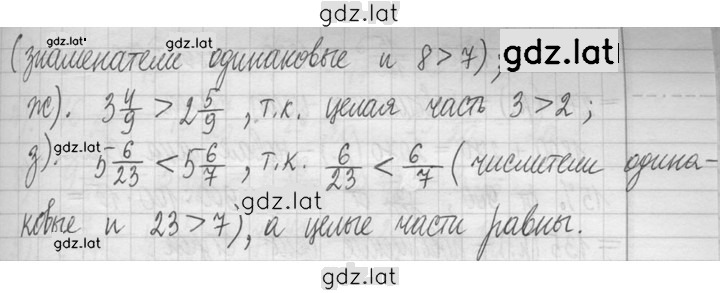 gdz.lat
gdz.lat gdz.lat
(знаменатели одинаковые и 8 > 7); gdz.lat
ж). 3 4/9 > 2 5/9, т.к. целая часть 3 > 2;
з). 5 6/23 < 5 6/7, т.к. 6/23 < 6/7 (числители одина-
gdz.lat gdz.lat
ковые и 23 > 7), а целые части равны.
gdz.lat
gdz.lat